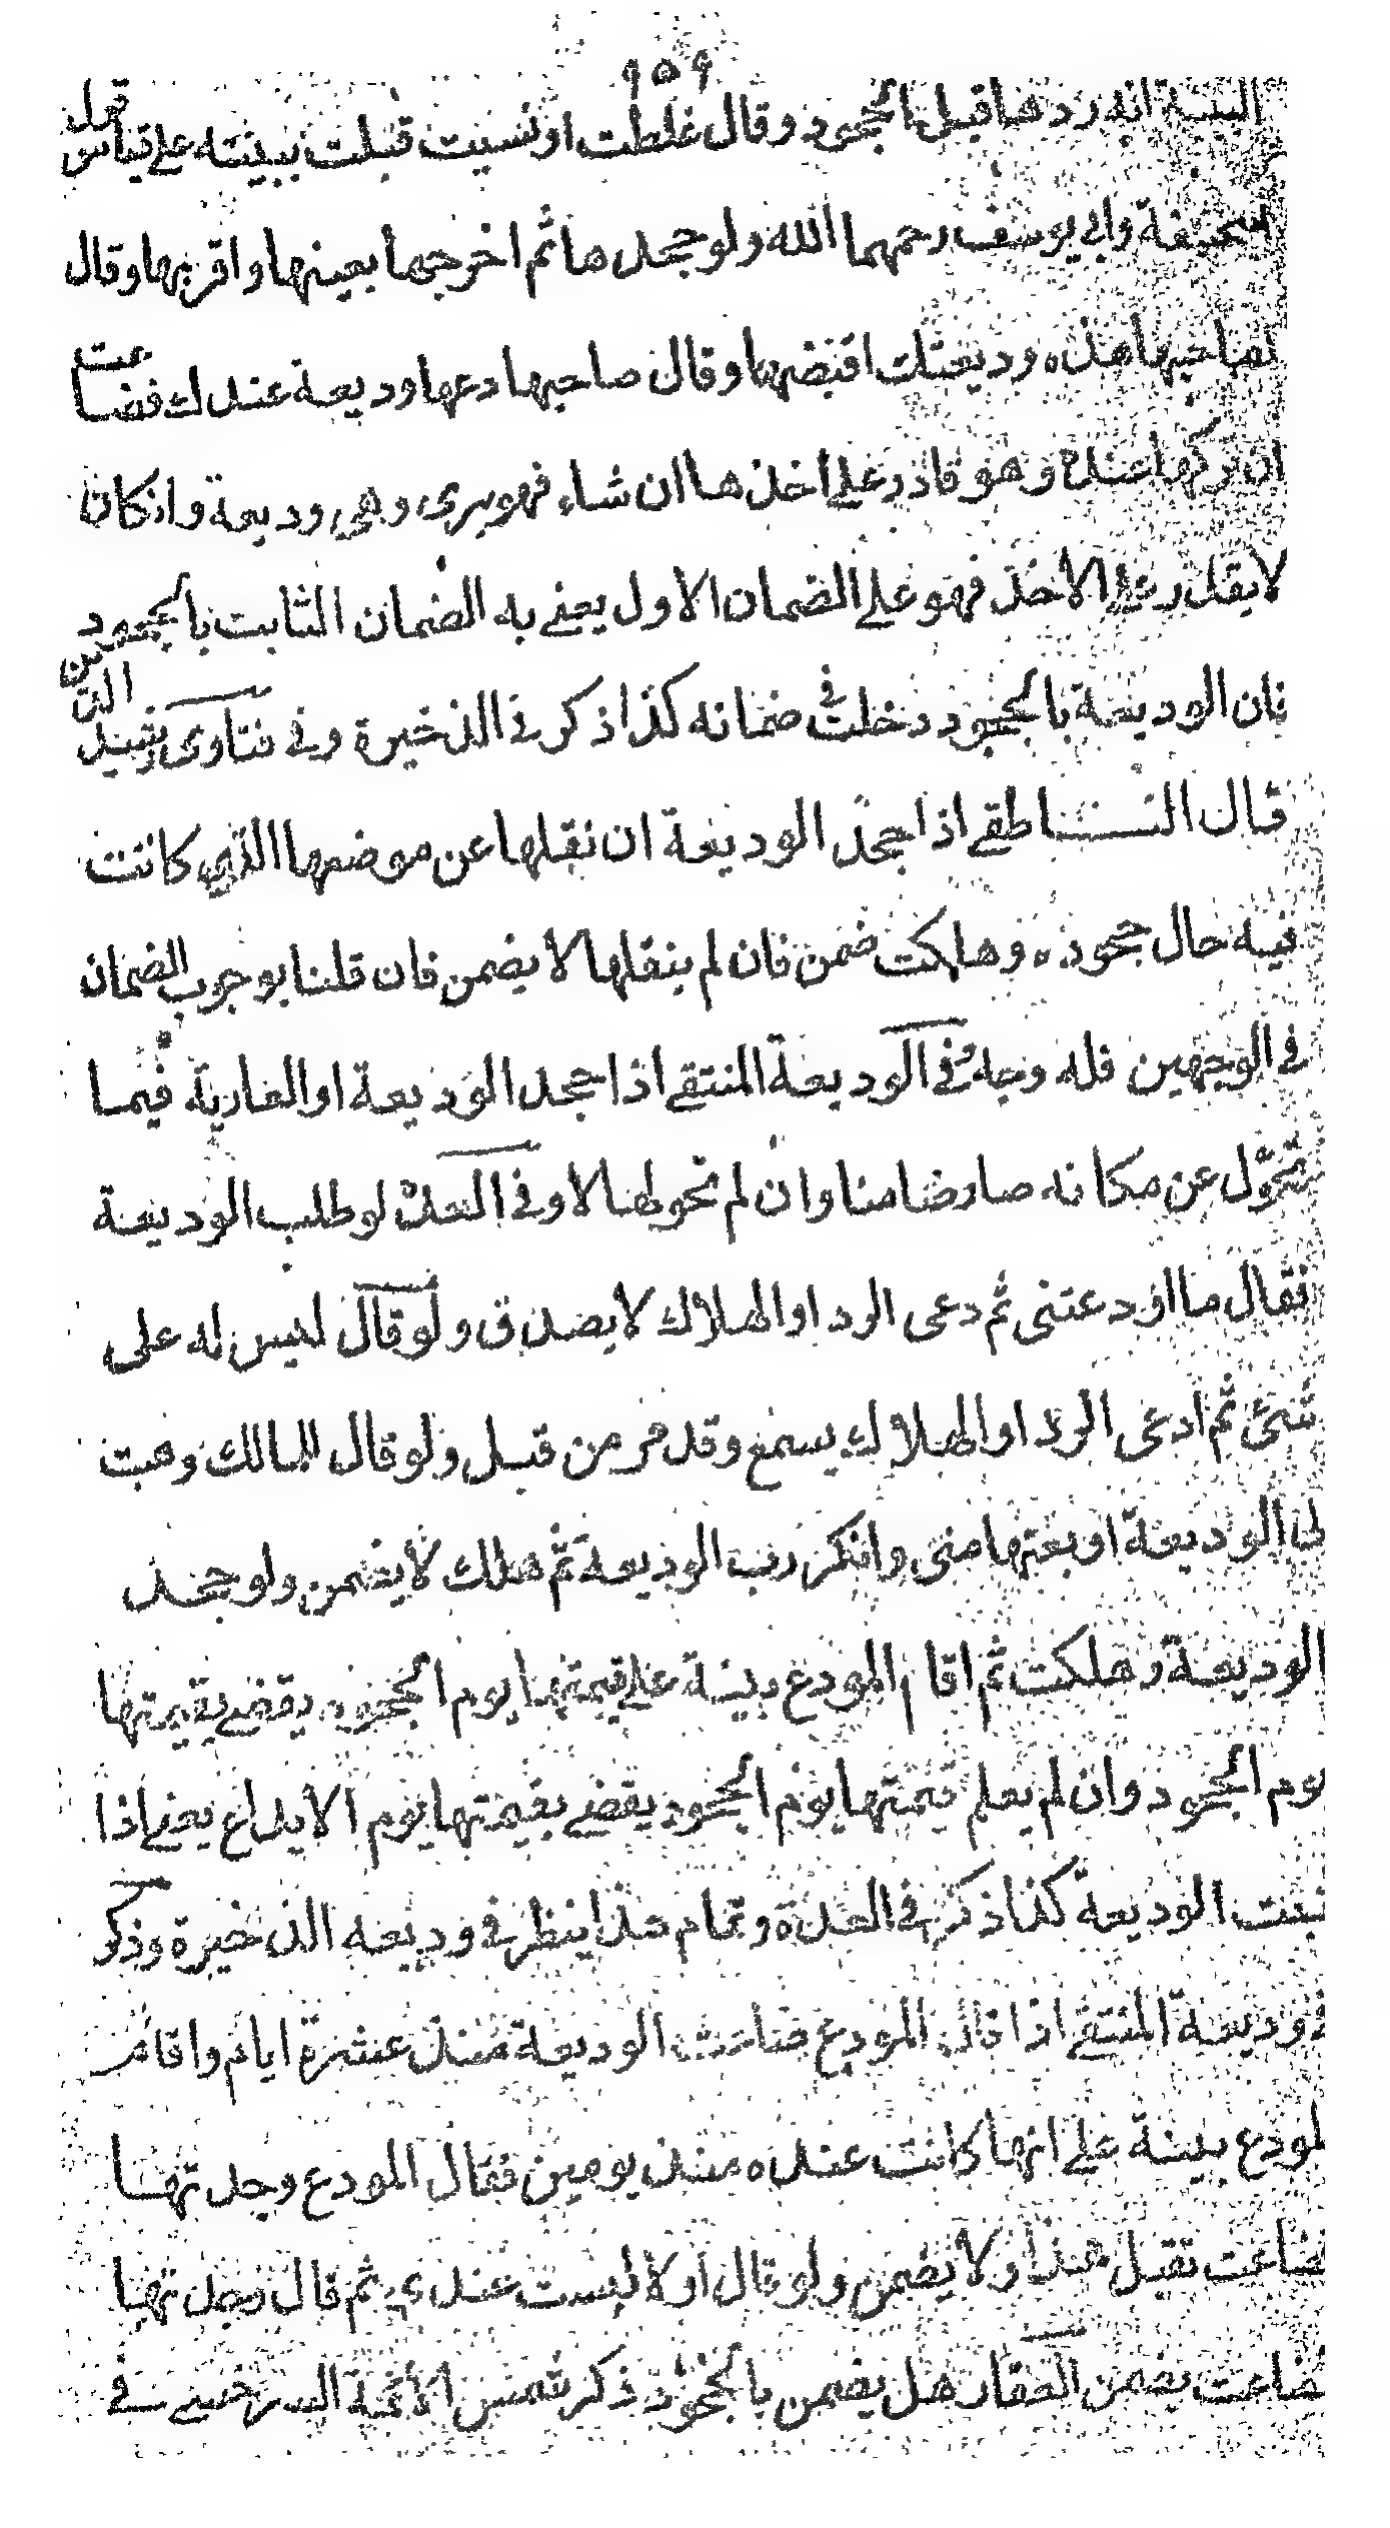 ٩٥٩
البينة انه ردها قبل الجحود وقال غلطت او نسيت قبلت ببينته على قياس قول
ابي حنيفة وابي يوسف رحمهما الله ولو جحدها ثم اخرجها بعينها واقر بها وقال
لصاحبها هذه وديعتك اقبضها وقال صاحبها دعها وديعة عندك فضاعت
ان تركها عنده وهو قادر على اخذها ان شاء فهو برى وهي وديعة وان كان
لا يقدر على الاخذ فهو على الضمان الاول يعنى به الضمان الثابت بالجحود
فان الوديعة بالجحود دخلت في ضمانه كذا ذكر في الذخيرة وفي فتاوى رشيد الدين
قال الناطفى اذا جحد الوديعة ان نقلها عن موضعها الذي كانت
فيه حال جحوده وهلكت ضمن فان لم ينقلها لا يضمن فان قلنا بوجوب الضمان
في الوجهين فله وجه وفي الوديعة المنتقى اذا جحد الوديعة او العارية فيما
يتحول عن مكانه صار ضامنا وان لم تحولها لا وفي العدة لو طلب الوديعة
فقال ما اودعتنى ثم دعى الرد او الهلاك لا يصدق ولو قال ليس له على
شئ ثم ادعى الرد او الهلاك يسمع وقد مر من قبل ولو قال للمالك وهبت
لى الوديعة او بعتها منى وانكر رب الوديعة ثم هلك لا يضمن ولو جحد
الوديعة وهلكت ثم اقام المودع بينة على قيمتها يوم الجحود يقضى بقيمتها
يوم الجحود وان لم يعلم قيمتها يوم الجحود يقضى بقيمتها يوم الايداع يعنى اذا
ثبت الوديعة كذا ذكر في العدة وتمام هذا ينظر في وديعه الذخيرة وذكر
في وديعة المنتقى اذا قال المودع ضاعت الوديعة منذ عشرة ايام واقام
المودع بينة على انها كانت عنده منذ يومين فقال المودع وجدتها
فضاعت تقبل هذا ولا يضمن ولو قال اولا ليست عندي ثم قال وجدتها
فضاعت يضمن العقار هل يضمن بالجحود ذكر شمس الائمة السرخسى في